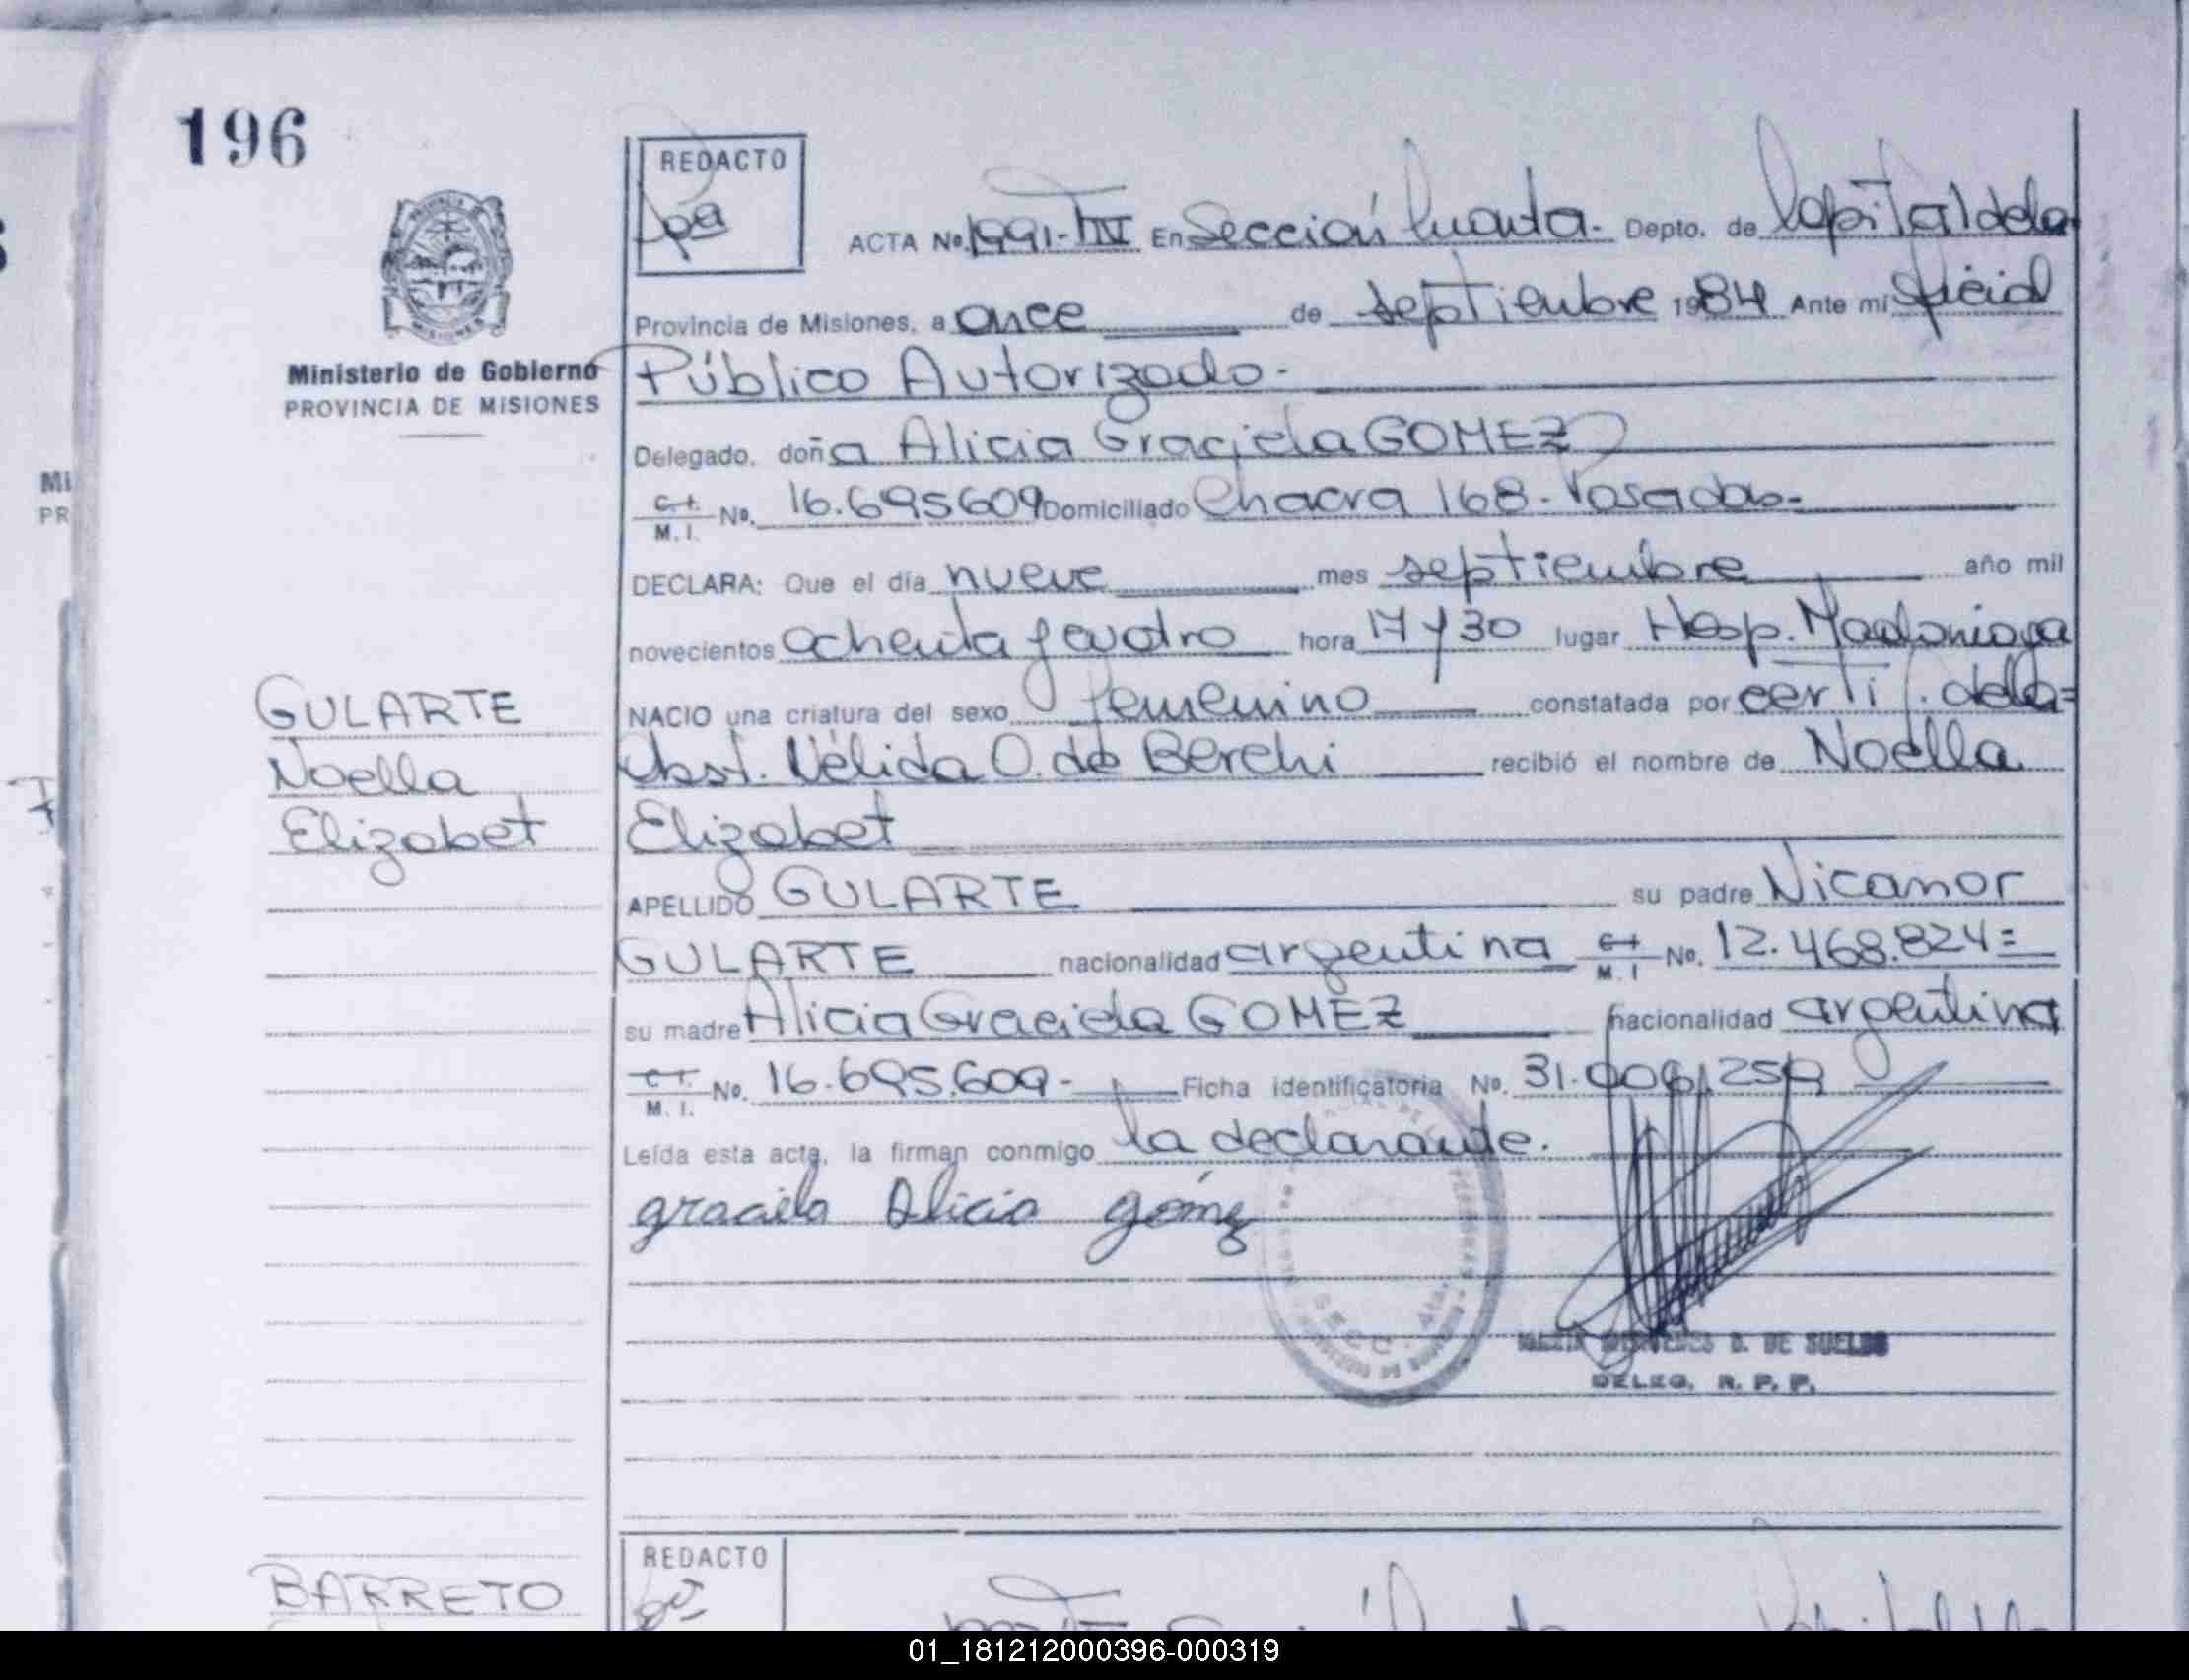 196
REDACTO
ACTA No. 1991-TIV En Sección Cuarta.- Depto. de Capital de la
Provincia de Misiones, a once de septiembre 1984 Ante mí Oficial
Ministerio de Gobierno
PROVINCIA DE MISIONES
Público Autorizado.-
Delegado, doña Alicia Graciela GOMEZ
C.I. M.I. No. 16.695609 Domiciliado Chacra 168 - Posadas.-
DECLARA: Que el día nueve mes septiembre año mil
novecientos ochenta y cuatro hora 17 y 30 lugar Hosp. Madariaga
NACIO una criatura del sexo femenino constatada por certif. de la=
Obst. Nélida O. de Berchi recibió el nombre de Noella
Elizabet
GULARTE
Noella
Elizabet
APELLIDO GULARTE su padre Nicanor
GULARTE nacionalidad argentina C.I. M.I No. 12.468.824=
su madre Alicia Graciela GOMEZ nacionalidad argentina
C.I. M.I. No. 16.695.609- Ficha identificatoria No. 31.006.259
Leída esta acta, la firman conmigo la declarante.
graciela Alicia gómez
SECC. 4ta.
D. DE SUELDO
DELEG. R. P. P.
REDACTO
BARRETO
01_181212000396-000319